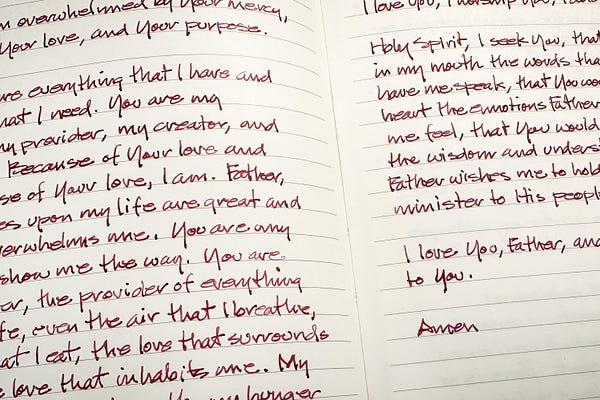 overwhelmed by Your mercy,
Your love, and Your purpose.
everything that I have and
what I need. You are my
my provider, my creator, and
Because of Your love and
of Your love, I am. Father,
upon my life are great and
overwhelms me. You are my
show me the way. You are
the provider of everything
even the air that I breathe,
that I eat, the love that surrounds
love that inhabits me. My
my hunger
I love You, I worship You, I
Holy Spirit, I seek You, that
in my mouth the words tha
have me speak, that You wou
heart the emotions Father
me feel, that You would
the wisdom and unders
Father wishes me to hold
minister to His peopl
I love You, Father, and
to You.
Amen